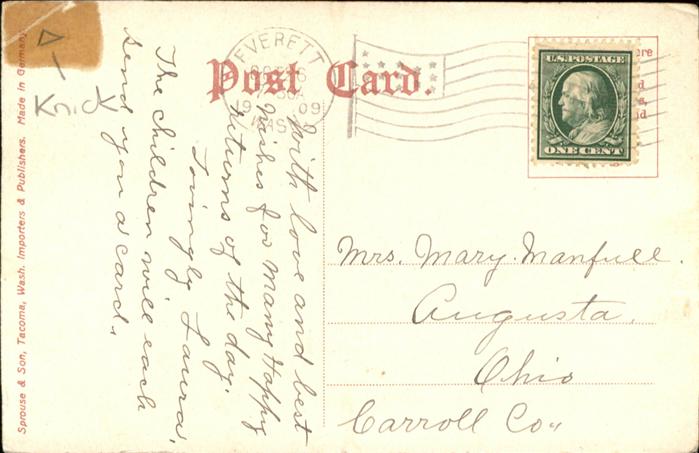 Post Card.
EVERETT
1909
WASH
U.S. POSTAGE
ONE CENT
With love and best
wishes for many Happy
returns of the day.
Lovingly Laura.
The children will each
send you a card.
Mrs. Mary Manfull.
Augusta.
Ohio
Carroll Co.,
Sprouse & Son, Tacoma, Wash. Importers & Publishers. Made in Germany